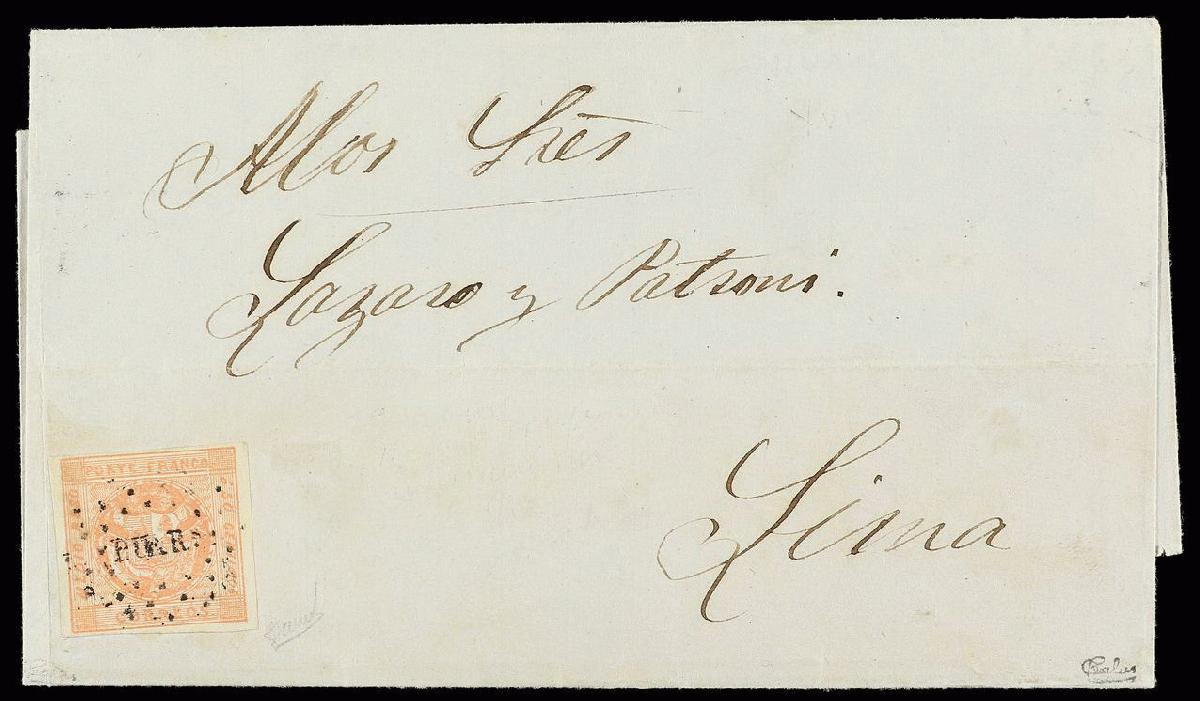 A los S.res
Lazaro y Patroni.
Lima
PORTE FRANCO
CORREOS